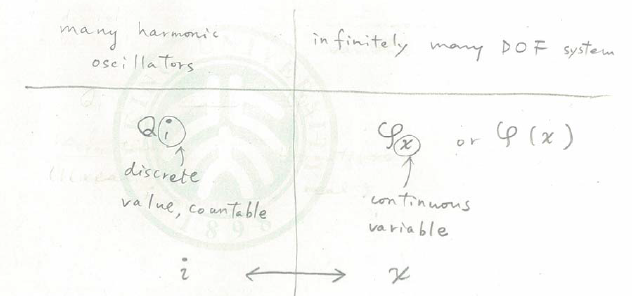 many harmonic
oscillators
infinitely many DOF system
Qi
discrete
value, countable
φx or φ(x)
continuous
variable
i ⟷ x
1898